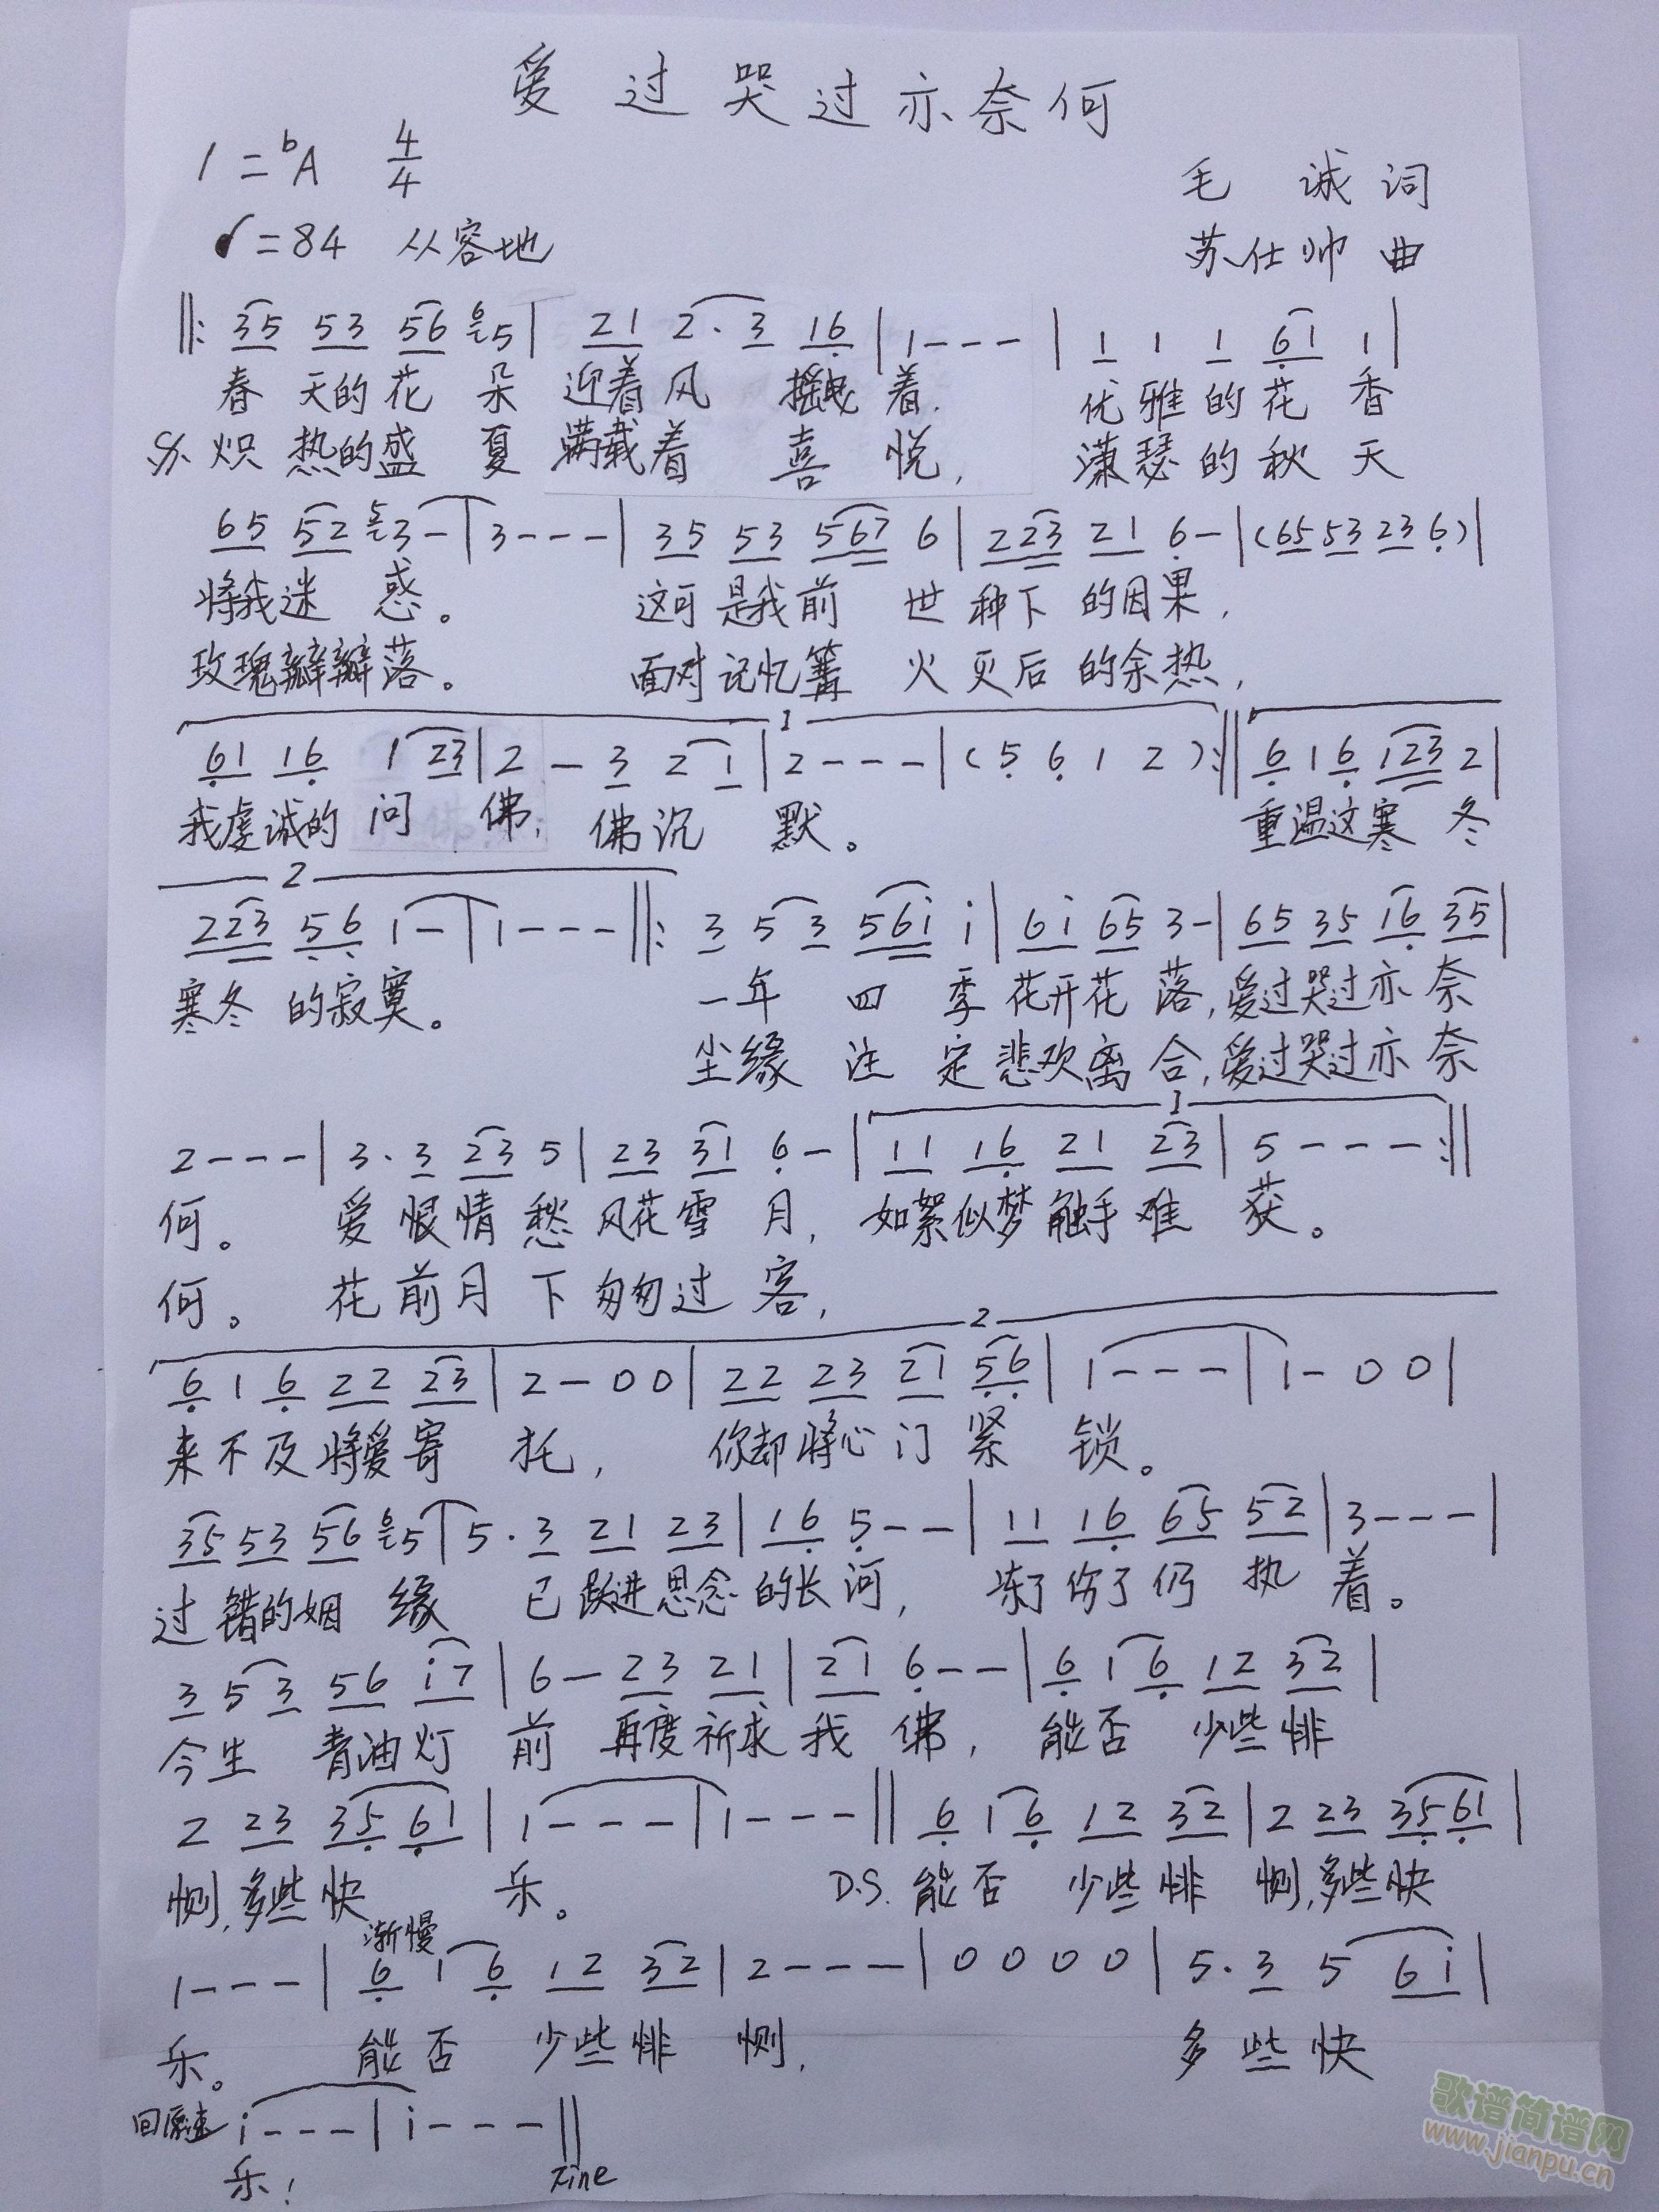 爱过哭过亦奈何
1=bA 4/4
毛诚词
♩=84 从容地
苏仕帅曲
‖: 35 53 56 65 | 21 2·3 16 | 1--- | 1 1 1 61 1 |
春天的花朵迎着风摇曳着. 优雅的花香
炽热的盛夏满载着喜悦, 潇瑟的秋天
65 52 53- | 3--- | 35 53 567 6 | 223 21 6- | (65 53 23 6) |
将我迷惑。 这可是我前世种下的因果,
玫瑰瓣瓣落。 面对记忆篝火灭后的余热,
1
61 16 1 23 | 2 - 3 2 1 | 2--- | (5 6 1 2) :‖ 6 1 6 123 2 |
我虔诚的问佛, 佛沉默。 重温这寒冬
2
223 56 1- | 1--- ‖: 3 5 3 561 1 | 61 65 3- | 65 35 16 35 |
寒冬的寂寞。 一年四季花开花落, 爱过哭过亦奈
尘缘注定悲欢离合, 爱过哭过亦奈
1
2--- | 3·3 23 5 | 23 31 6- | 11 16 21 23 | 5--- :‖
何。 爱恨情愁风花雪月, 如絮似梦触手难获。
何。 花前月下匆匆过客,
2
6 1 6 22 23 | 2-00 | 22 23 21 56 | 1--- | 1-00 |
来不及将爱寄托, 你却将心门紧锁。
35 53 56 65 | 5·3 21 23 | 16 5-- | 11 16 65 52 | 3--- |
过错的姻缘 已跃进思念的长河, 冻了伤了仍执着。
3 5 3 56 17 | 6- 23 21 | 21 6-- | 6 1 6 12 32 |
今生青油灯前再度祈求我佛, 能否少些悱
2 23 35 61 | 1--- | 1--- ‖ 6 1 6 12 32 | 2 23 35 61 |
恻, 多些快乐。 D.S. 能否少些悱恻, 多些快
渐慢
1--- | 6 1 6 12 32 | 2--- | 0000 | 5·3 5 61 |
乐。 能否少些悱恻, 多些快
回原速 1--- | 1--- ‖
乐! Fine
歌谱简谱网
www.jianpu.cn